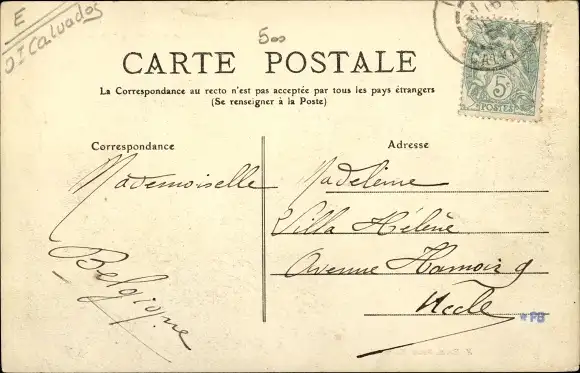 E
DI Calvados
500
5c
POSTES
CARTE POSTALE
La Correspondance au recto n'est pas acceptée par tous les pays étrangers
(Se renseigner à la Poste)
Correspondance
Adresse
Mademoiselle Madeleine
Villa Hélène
Avenue Hamoir 9
Uccle
Belgique
*PB